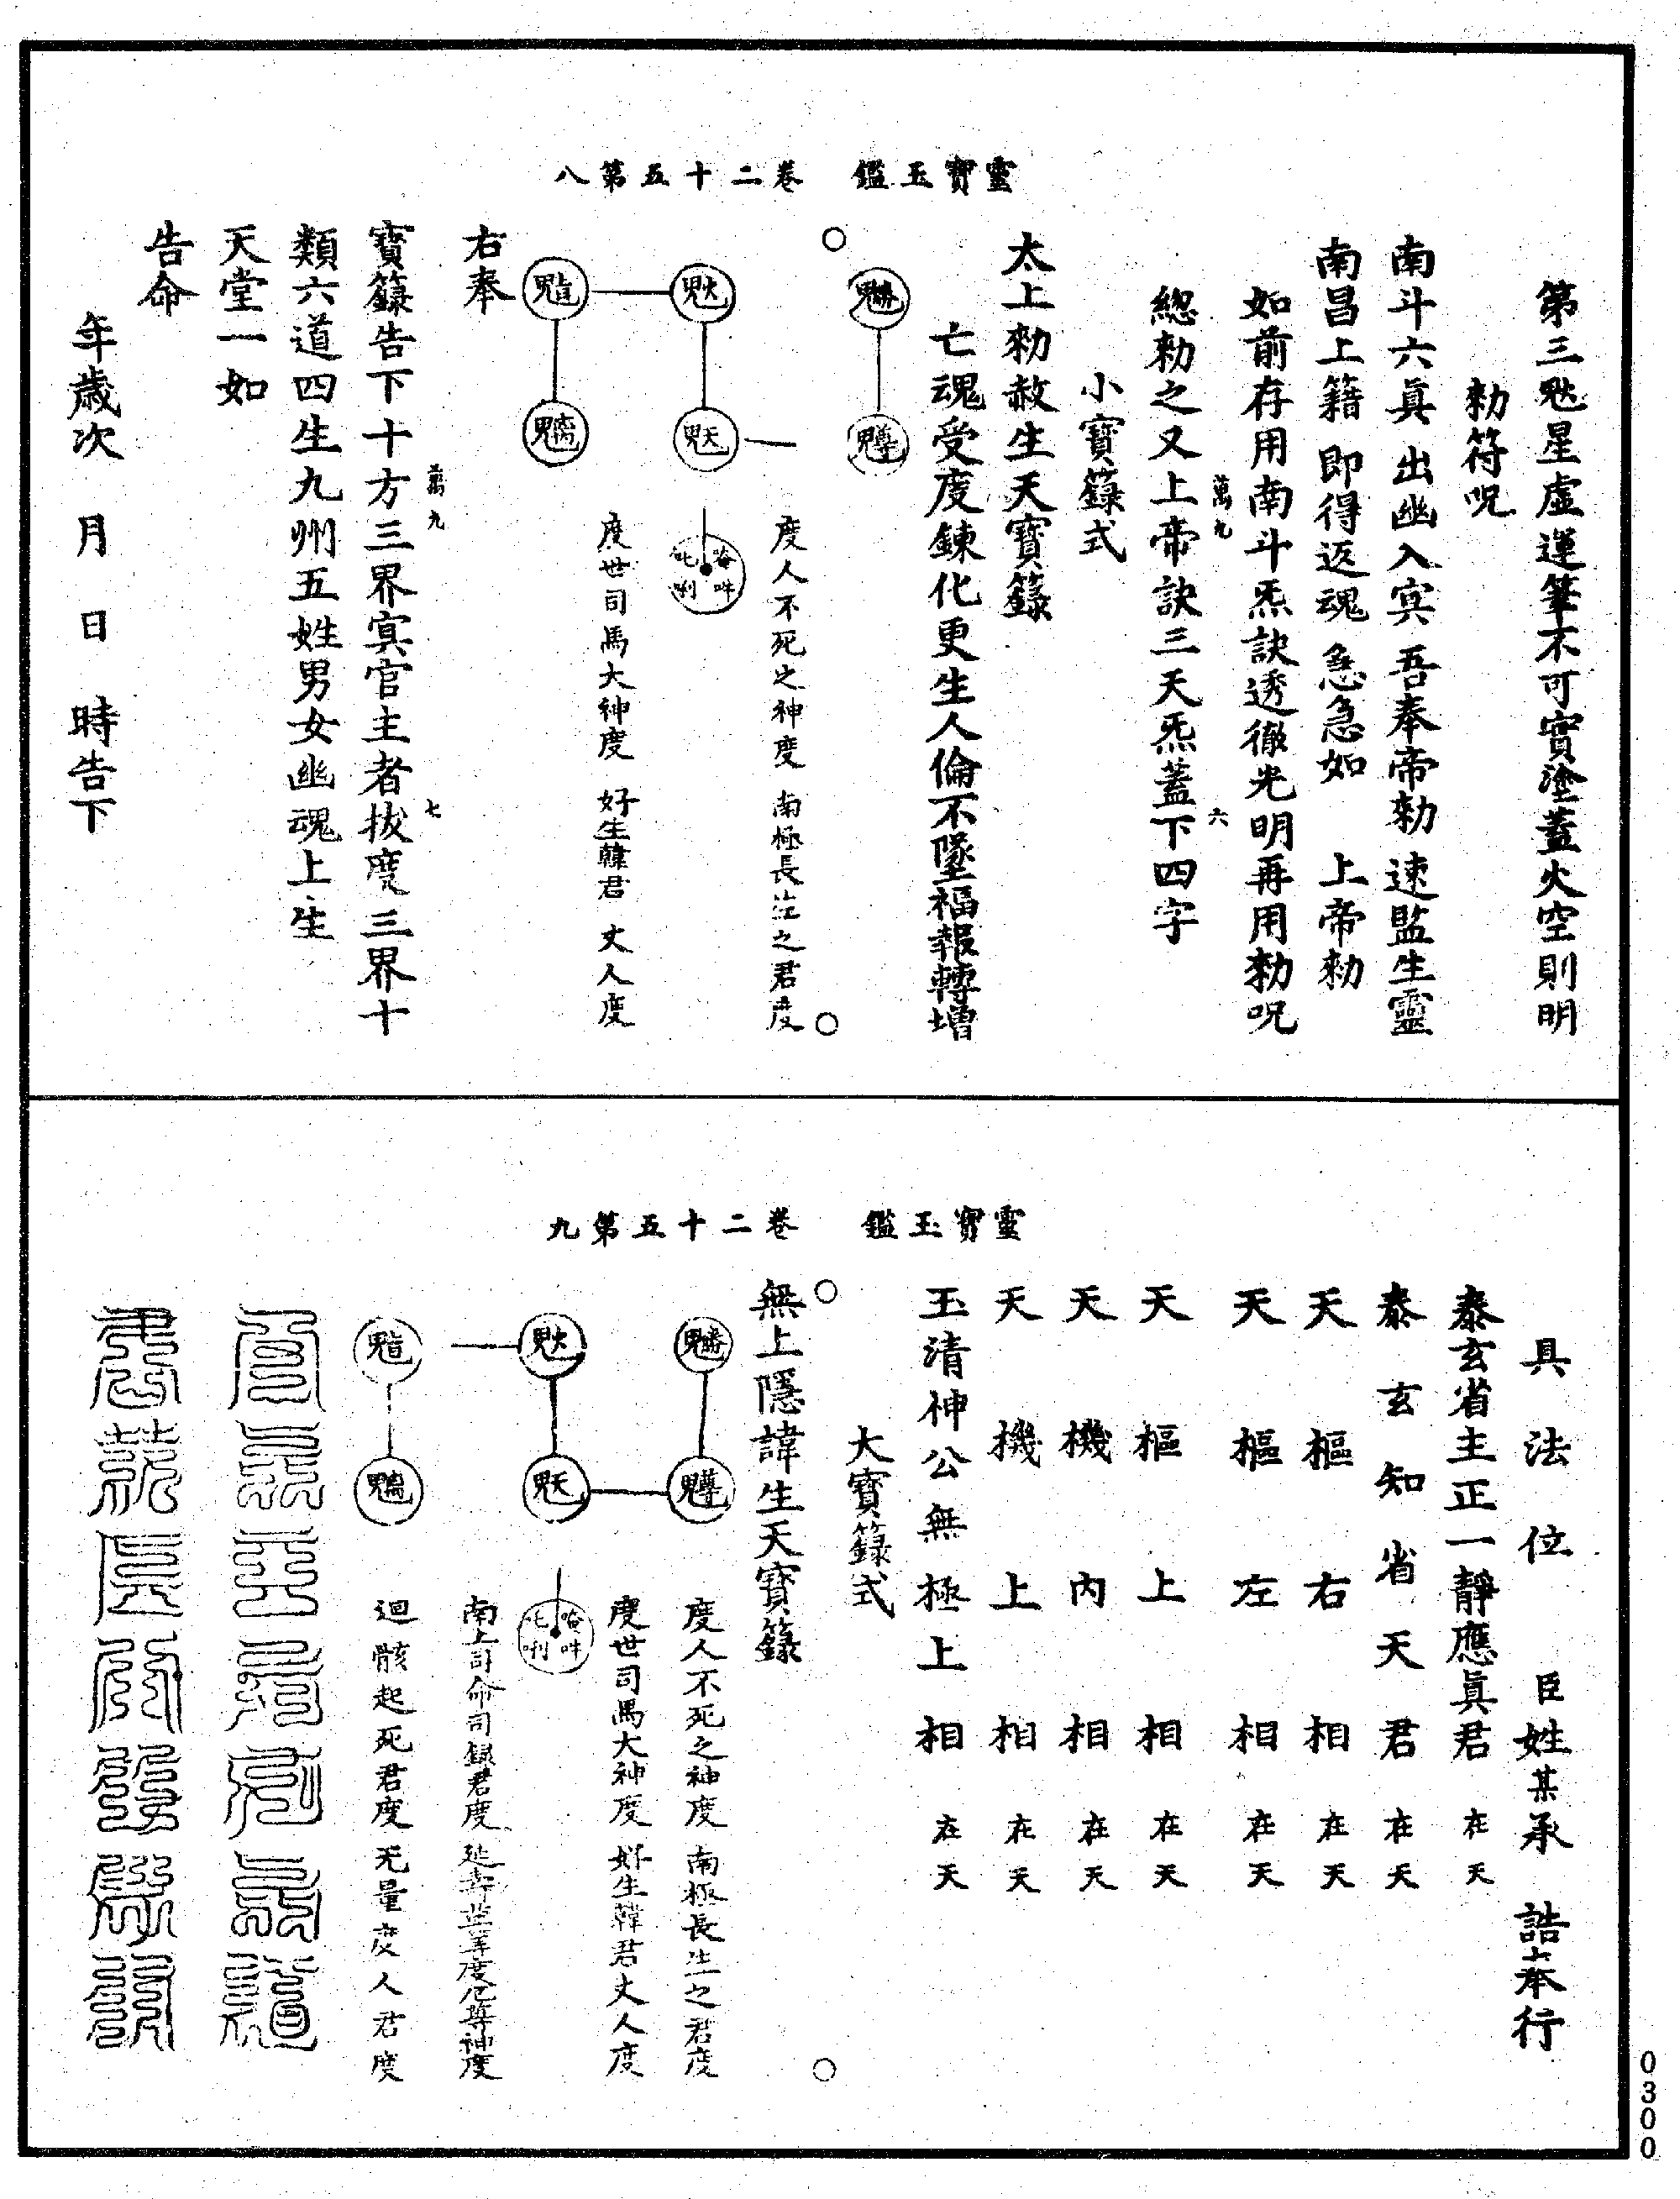 靈寶玉鑑　卷二十五第八
第三魁星虛運筆不可實塗蓋火空則明
勑符呪
南斗六眞　出幽入㝠　吾奉帝勑　速監生靈
南昌上籍　即得返魂　急急如　上帝勑
如前存用南斗炁訣透徹光明再用勑呪
萬九　六
總勑之又上帝訣三天炁蓋下四字
小寶籙式
太上勑赦生天寶籙
亡魂受度鍊化更生人倫不墜福報轉增
度人不死之神度　南極長生之君度
唵吽吒唎
度世司馬大神度　好生韓君　丈人度
右奉
萬九　七
寶籙告下十方三界㝠官主者拔度三界十
類六道四生九州五姓男女幽魂上生
天堂一如
告命
年歲次　月　日　時告下
靈寶玉鑑　卷二十五第九
具法位　臣姓某承　誥奉行
泰玄省主正一靜應眞君　在天
泰玄知省天君　在天
天樞右相　在天
天樞左相　在天
天樞上相　在天
天機內相　在天
天機上相　在天
玉清神公無極上相　在天
大寶籙式
無上隱諱生天寶籙
度人不死之神度　南極長生之君度
度世司馬大神度　好生韓君丈人度
唵吽吒唎
南上司命司錄君度　延壽益筭度厄尊神度
迴骸起死君度　无量度人君度
0300